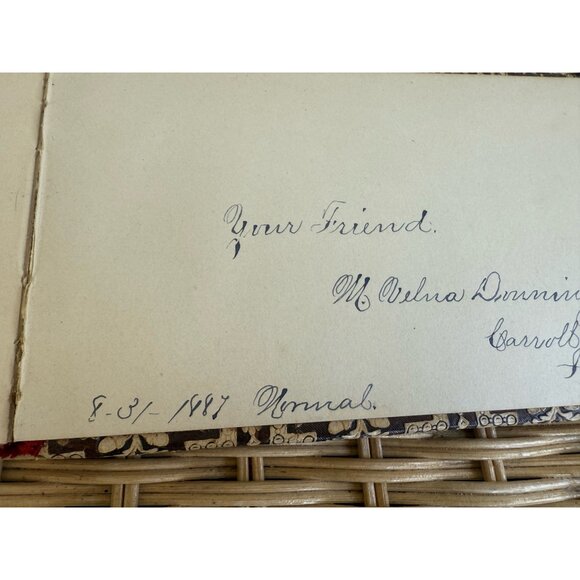 Your Friend.
M. Velna Downin
Carroll
8-31-1887 Normal.